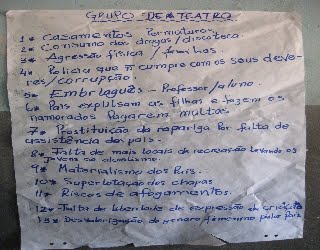 GRUPO DE TEATRO
1* Casamentos Permaturos.
2* Consumo das drogas/discoteca.
3* Agressão física / famílias.
4* Policia que ñ cumpre com os seus deve-
res/corrupção.
5* Embriaguês - Professor/aluno.
6* Pais expulsam as filhas e fazem os
namorados Pagarem multas
7* Prostituição da rapariga Por falta de
assistência dos pais.
8* Falta de mais locais de recreação levando os
Jovens ao alcoolismo.
9* Materialismo dos Pais.
10* Superlotação dos chapas
11* Riscos de afogamentos.
12* Falta de liberdade de expressão da criança
13* Desvalorização do género femenino pelos Pais